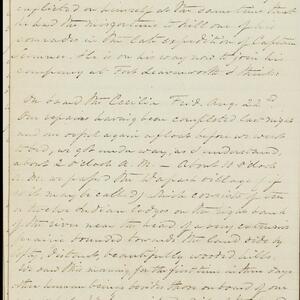 inflicted on himself at the same time that
he had the misfortune to kill one of his
comrades in the late expedition of Captain
He is on his way now to join his
company at Fort Leavenworth I think.
On board the Cecilia Frid. Aug. 22nd
Our repairs having been completed last night
and our craft again afloat before we went
to bed, we got under way, as I understand,
about 2 o'clock A. M. - About 11 o'clock
A. M. we passed the village (if
it may be called) which consists of ten
or twelve Indian lodges on the right bank
of the river near the head of a very
bounded towards the land side by
lofty, distant, beautifully wooded hills.
We saw this morning for the first time in ten days
other human beings besides those on board of our